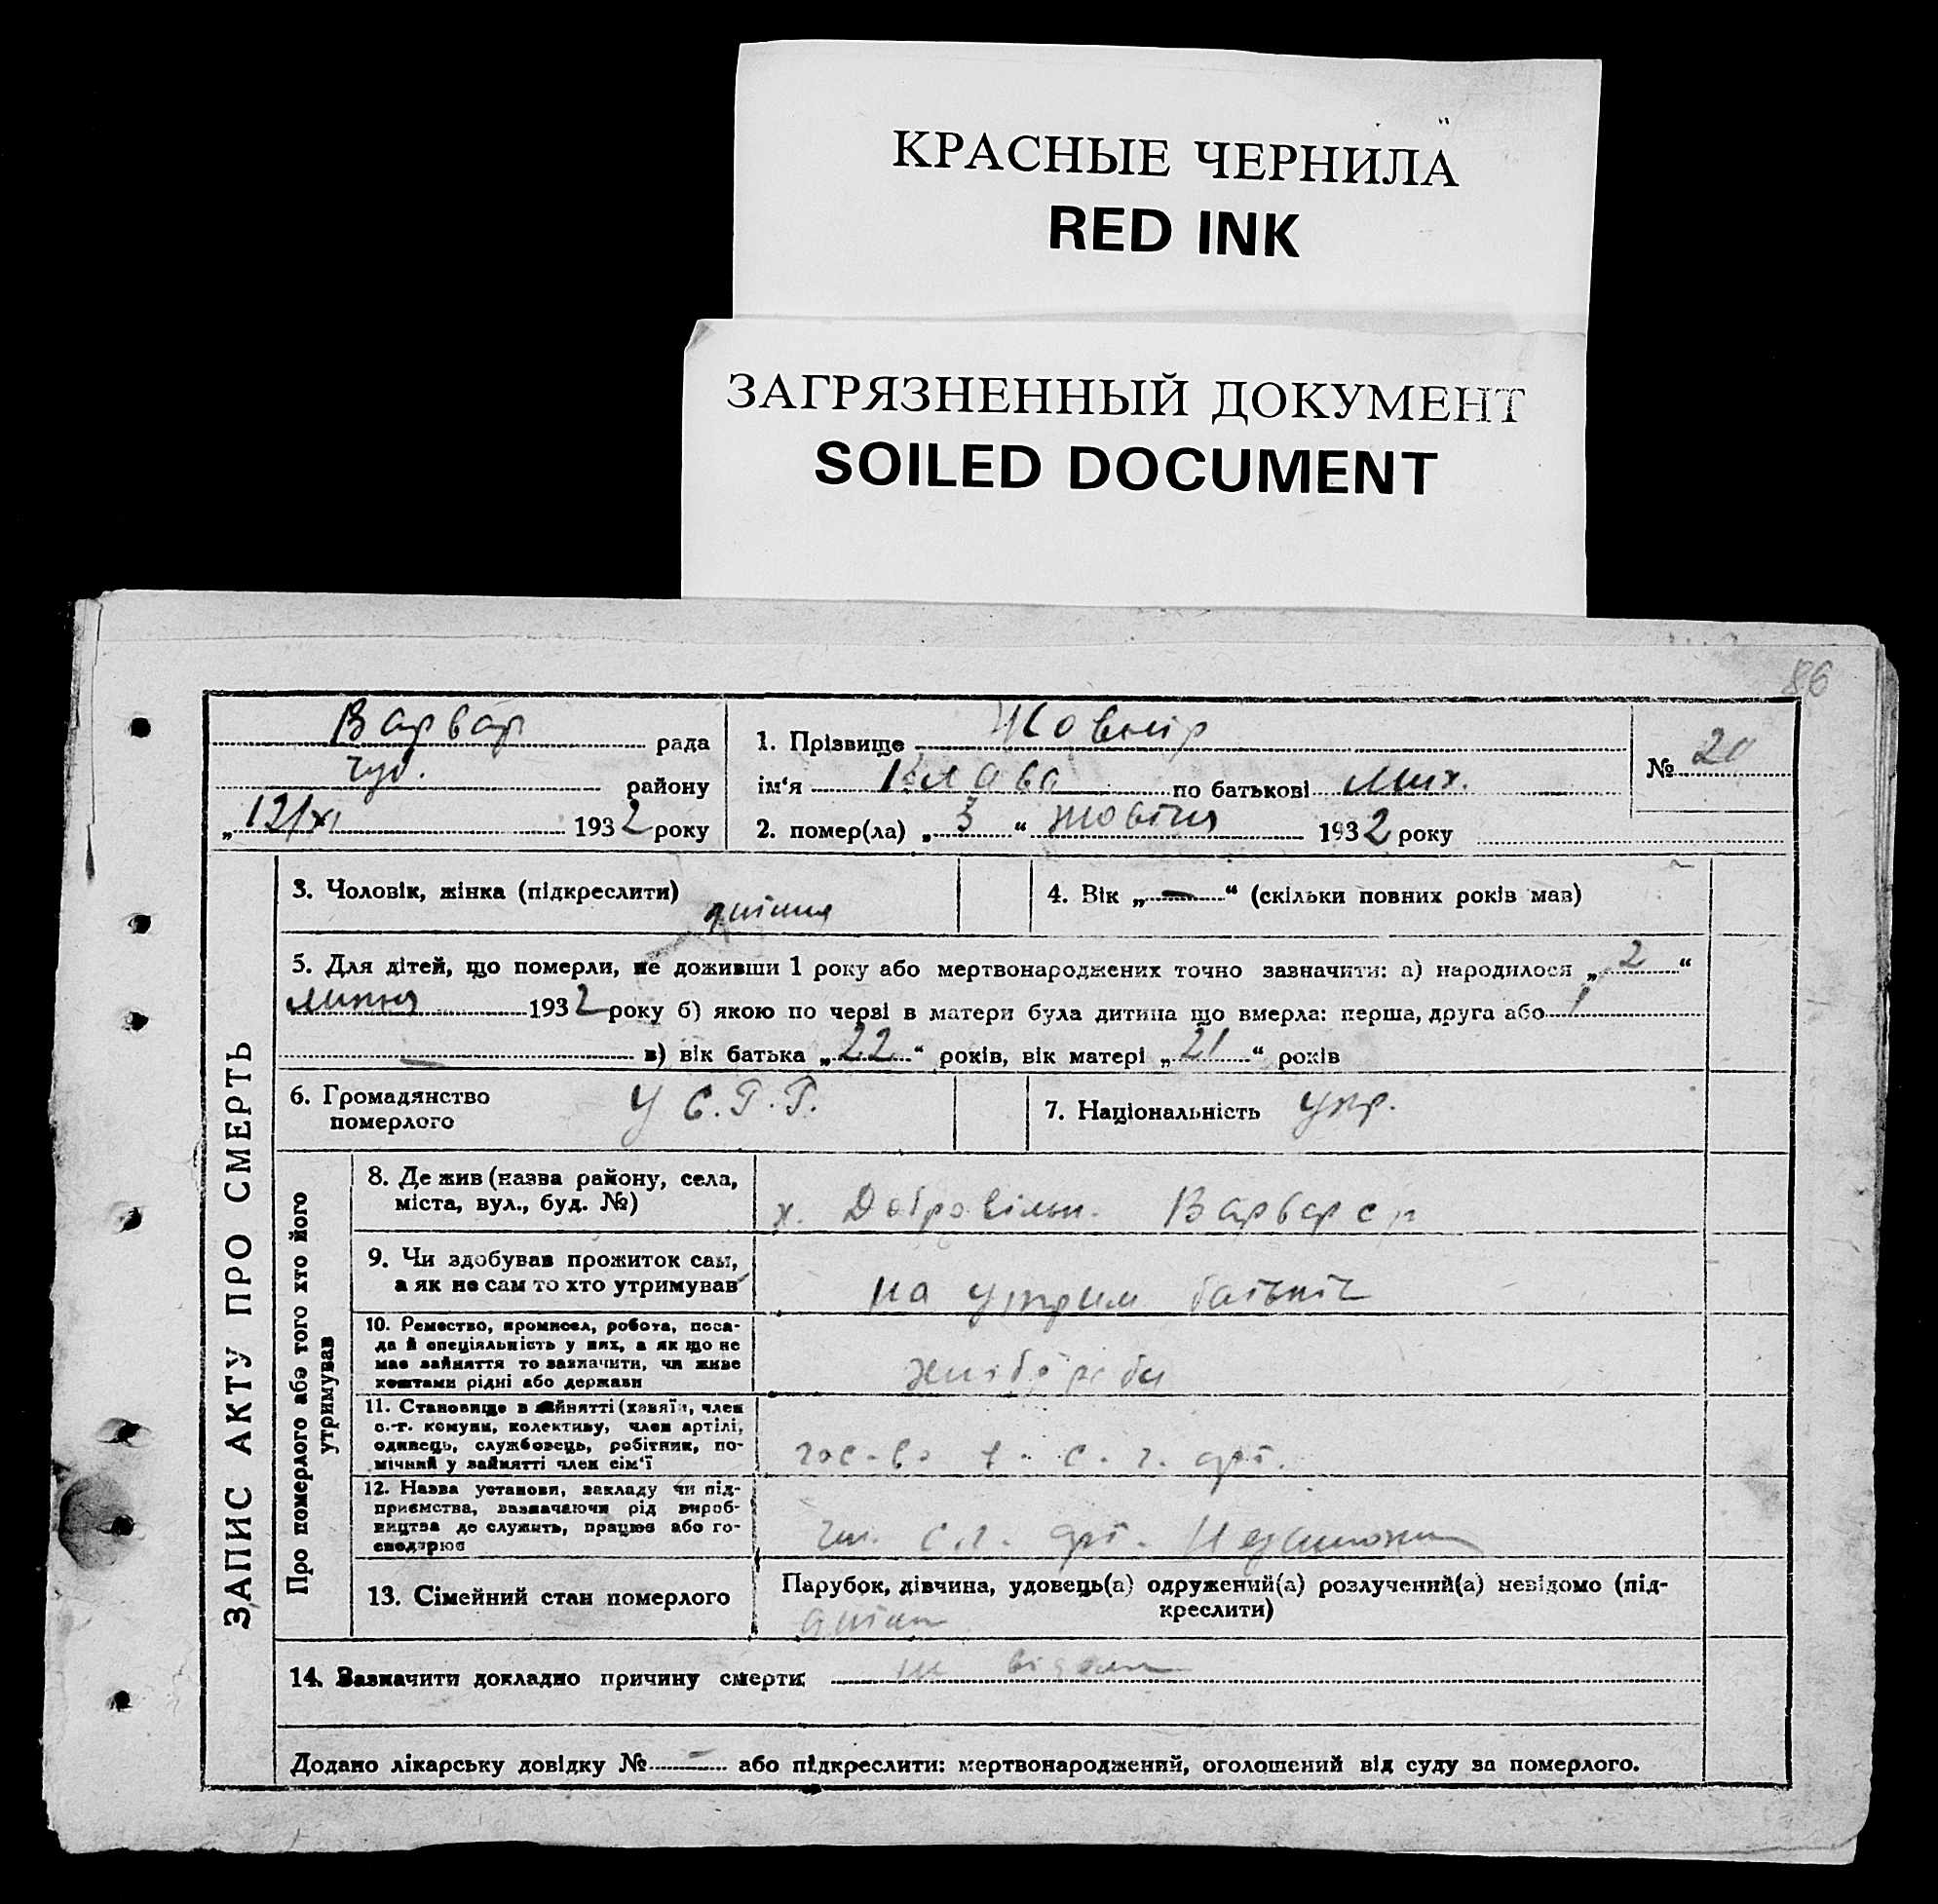 КРАСНЫЕ ЧЕРНИЛА
RED INK
ЗАГРЯЗНЕННЫЙ ДОКУМЕНТ
SOILED DOCUMENT
86
Варвар рада
Чуб. району
„12/XI 1932 року
1. Прізвище Жовнір
ім‘я Клава по батькові Мих.
2. помер(ла) „3“ жовтня 1932 року
№ 20
ЗАПИС АКТУ ПРО СМЕРТЬ
3. Чоловік, жінка (підкреслити)
4. Вік „—“ (скільки повних років мав)
5. Для дітей, що померли, не доживши 1 року або мертвонароджених точно зазначити: а) народилося „2“
липня 1932 року б) якою по черзі в матери була дитина що вмерла: перша, друга або 1
— в) вік батька „22“ років, вік матері „21“ років
6. Громадянство
померлого
У С.Р.Р.
7. Національність Укр.
Про померлого або того хто його
утримував
8. Де жив (назва району, села,
міста, вул., буд. №)
х. Добровільн. Варвар с р
9. Чи здобував прожиток сам,
а як не сам то хто утримував
на утрим батьків
10. Ремество, промисел, робота, поса-
да й спеціяльність у них, а як що не
має зайняття то зазначити, чи живе
коштами рідні або держави
хлібороби
11. Становище в зайнятті (хазяїн, член
с.-г. комуни, колективу, член артілі,
одинець, службовець, робітник, по-
мічний у зайнятті член сім‘ї
гос-во с. г. арт.
12. Назва установи, закладу чи під-
приємства, зазначаючи рід вироб-
ництва де служить, працює або го-
сподарює
чл. с.г. арт.
13. Сімейний стан померлого
Парубок, дівчина, удовець(а) одружений(а) розлучений(а) невідомо (під-
креслити)
14. Зазначити докладно причину смерти: не відомо
Додано лікарську довідку № — або підкреслити: мертвонароджений, оголошений від суду за померлого.